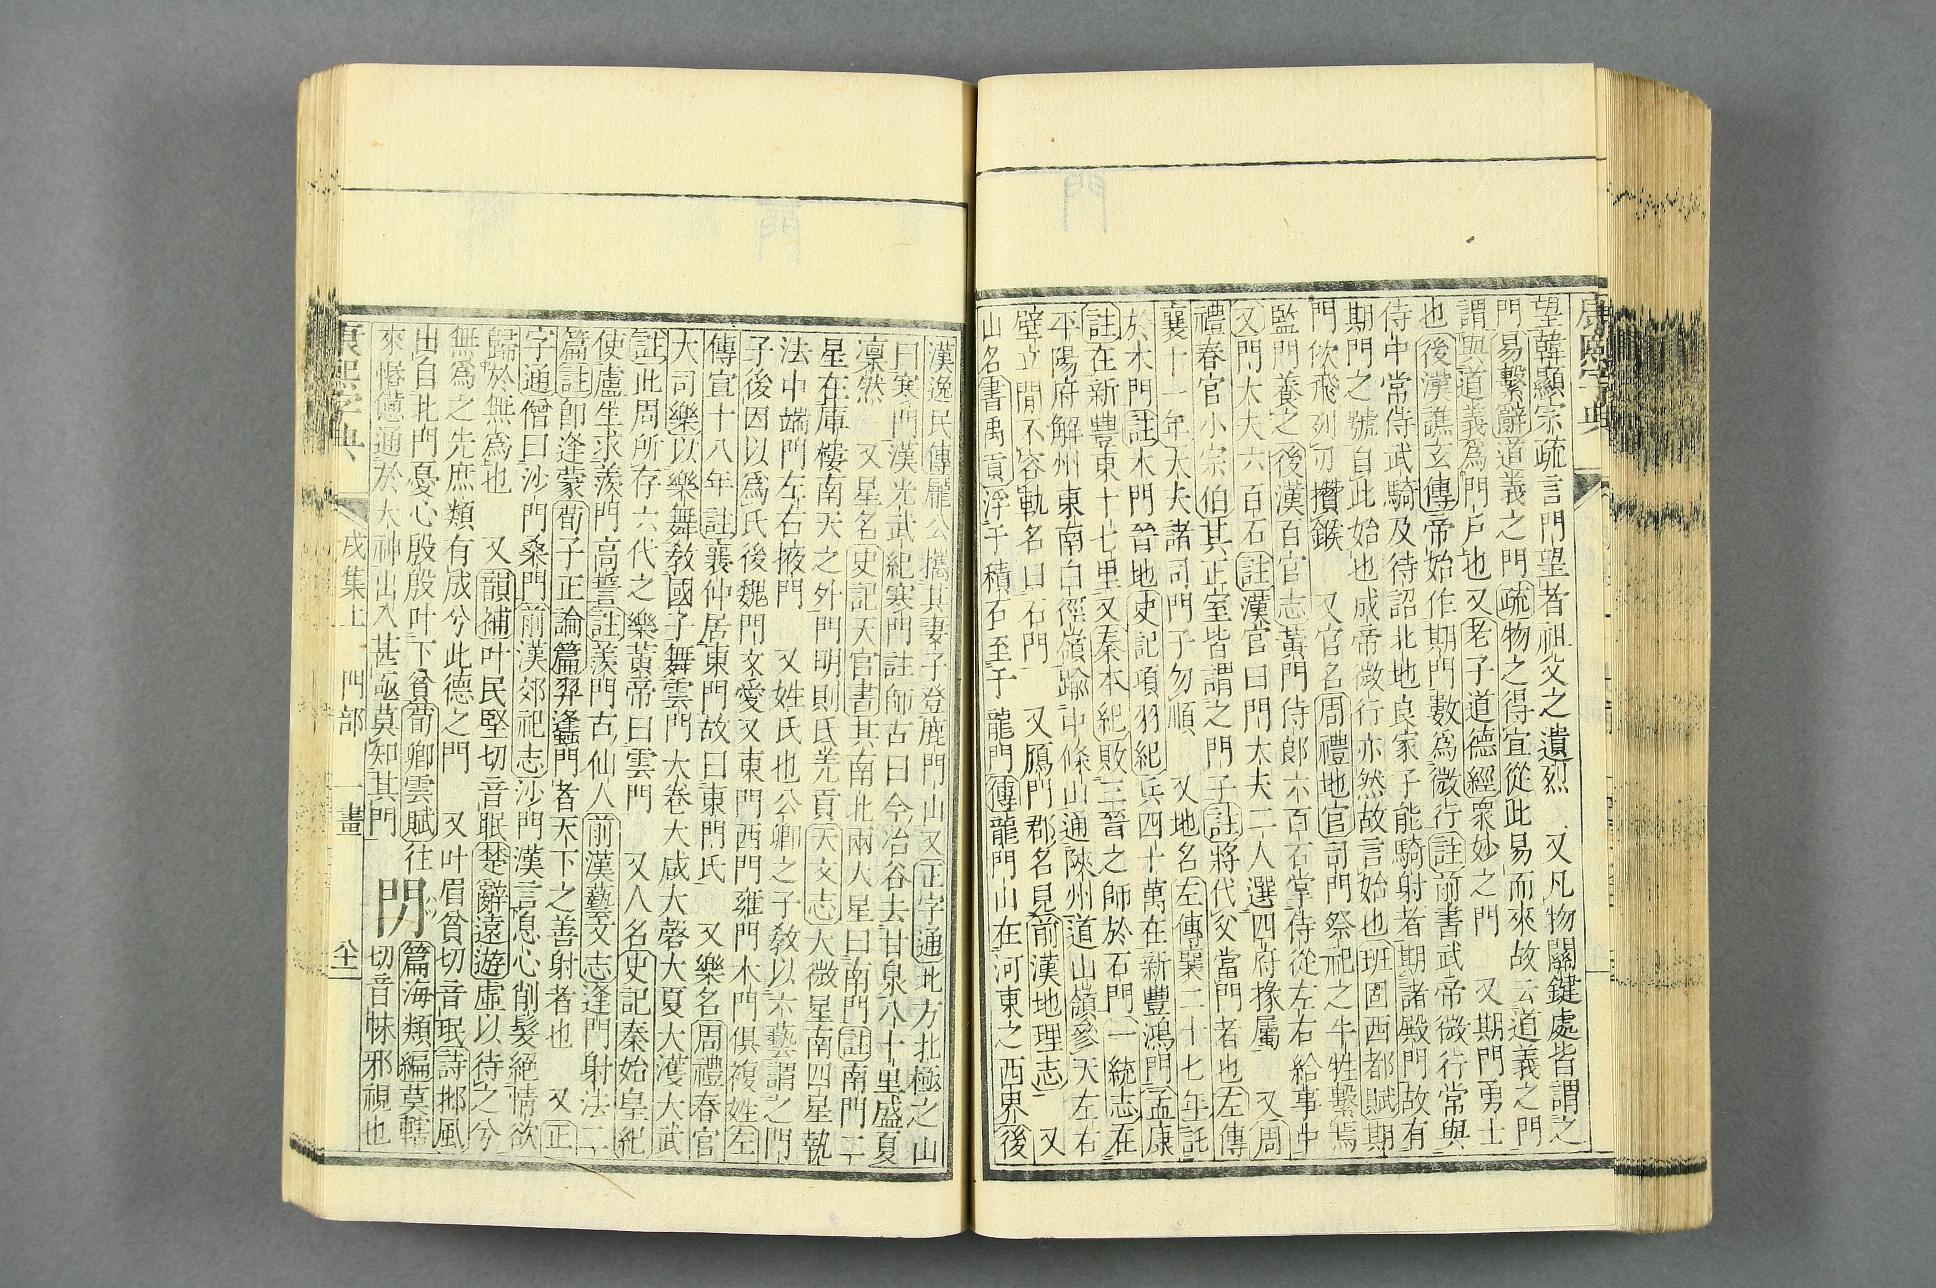 康熙字典
望韓顯宗疏言門望者祖父之遺烈 又凡物關鍵處皆謂之
門易繫辭道義之門疏物之得宜從此易而來故云道義之門
謂與道義爲門戸也又老子道德經衆妙之門 又期門勇士
也後漢譙玄傳帝始作期門數爲微行註前書武帝微行常與
侍中常侍武騎及待詔北地良家子能騎射者期諸殿門故有
期門之號自此始也成帝微行亦然故言始也班固西都賦期
門佽飛列刃攢鍭 又官名周禮地官司門祭祀之牛牲繫焉
監門養之後漢百官志黃門侍郎六百石掌侍從左右給事中
又門大夫六百石註漢官曰門大夫二人選四府掾屬 又周
禮春官小宗伯其正室皆謂之門子註將代父當門者也左傳
襄十一年大夫諸司門子勿順 又地名左傳襄二十七年託
於木門註木門晉地史記項羽紀兵四十萬在新豐鴻門孟康
註在新豐東十七里又秦本紀敗三晉之師於石門一統志在
平陽府解州東南白徑嶺踰中條山通陝州道山嶺參天左右
壁立閒不容軌名曰石門 又鴈門郡名見前漢地理志 又
山名書禹貢浮于積石至于龍門傳龍門山在河東之西界後
漢逸民傳龐公攜其妻子登鹿門山又正字通北方北極之山
曰寒門漢光武紀寒門註師古曰今冶谷去甘泉八十里盛夏
凜然 又星名史記天官書其南北兩大星曰南門註南門二
星在庫樓南天之外門明則氐羌貢天文志大微星南四星執
法中端門左右掖門 又姓氏也公卿之子敎以六藝謂之門
子後因以爲氏後魏門文愛又東門西門雍門木門俱複姓左
傳宣十八年註襄仲居東門故曰東門氏 又樂名周禮春官
大司樂以樂舞敎國子舞雲門大卷大咸大磬大夏大濩大武
註此周所存六代之樂黃帝曰雲門 又人名史記秦始皇紀
使盧生求羨門高誓註羨門古仙人前漢藝文志逢門射法二
篇註卽逢蒙荀子正論篇羿逢門者天下之善射者也 又正
字通僧曰沙門桑門前漢郊祀志沙門漢言息心削髮絕情欲
歸於無爲也 又韻補叶民堅切音眠楚辭遠遊虛以待之兮
無爲之先庶類有成兮此德之門 又叶眉貧切音珉詩邶風
出自北門憂心殷殷叶下貧荀卿雲賦往
來惛憊通於大神出入甚亟莫知其門
閅
篇海類編莫轄
切音帓邪視也
康熙字典 戌集上 門部 一畫